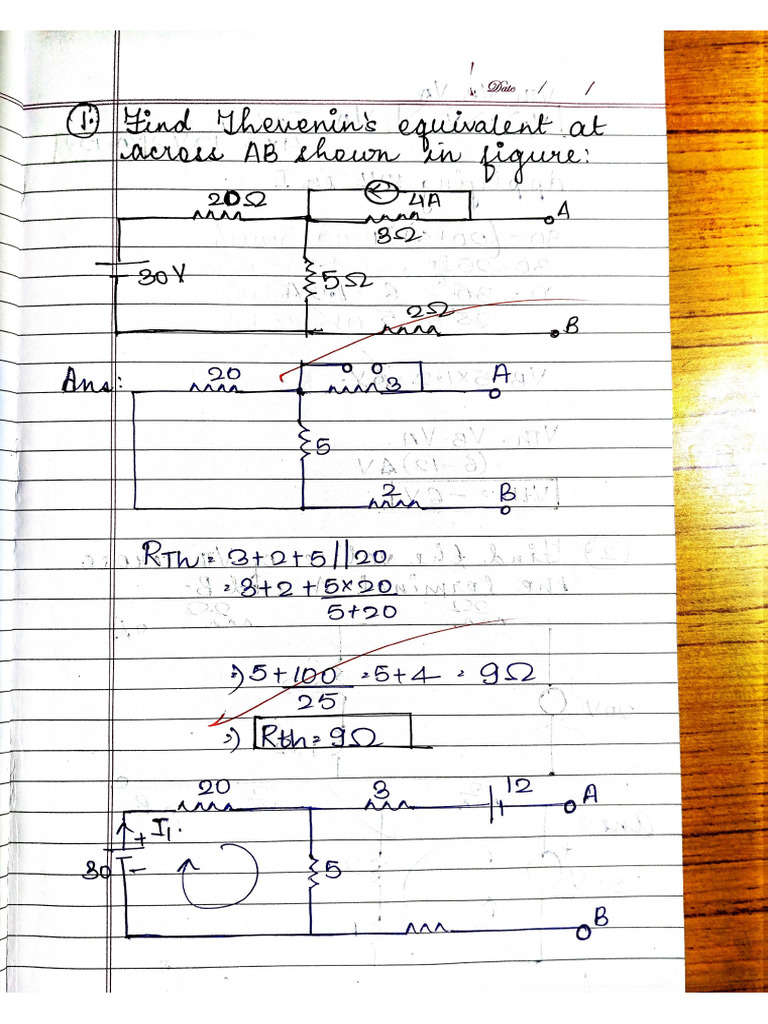 Date / /
1. Find Thevenin's equivalent at
across AB shown in figure:
20Ω 4A A
3Ω
30V 5Ω
2Ω B
Ans: 20 3 A
5
2 B
RTh = 3+2+5||20
= 3+2+ 5×20
5+20
=) 5+100 = 5+4 = 9Ω
25
=) Rth = 9Ω
20 3 12 A
+ I1.
30 - 5
B